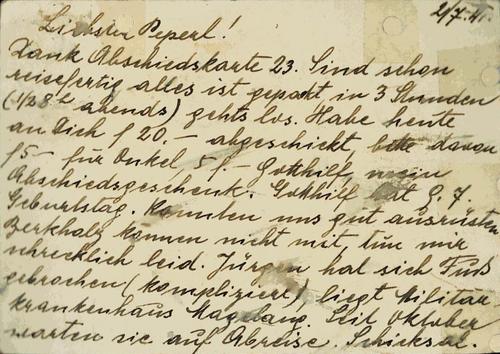 2/7.41.
Liebster Peperl!
Dank Abschiedskarte 23. Sind schon
reisefertig alles ist gepackt in 3 Stunden
(1/28h abends) gehts los. Habe heute
an Dich f 20.- abgeschickt, bitte davon
f5- für Onkel, 5 f.- Gotthilf, mein
Abschiedsgeschenk. Gotthilf hat 9. 7.
Geburtstag. Konnten uns gut ausrüsten
Berkholz können nicht mit, tun mir
schrecklich leid. Jürgen hat sich Fuss
gebrochen (kompliziert), liegt Militär
krankenhaus Magelang. Seit Oktober
warten sie auf Abreise. Schicksal.